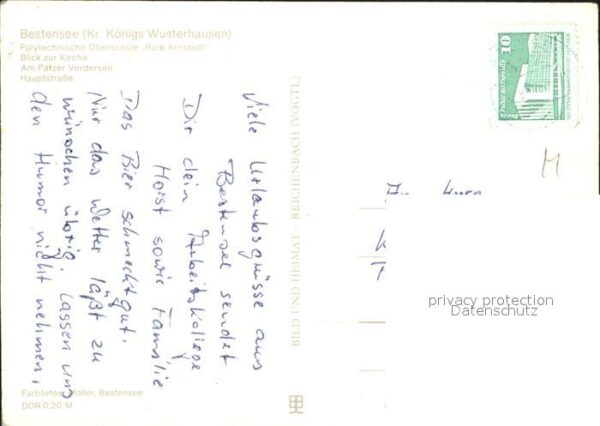 Bestensee (Kr. Königs Wusterhausen)
Polytechnische Oberschule „Rudi Arnstadt"
Blick zur Kirche
Am Pätzer Vordersee
Hauptstraße
Viele Urlaubsgrüsse aus
Bestensee sendet
Dir dein Arbeitskollege
Horst sowie Familie
Das Bier schmeckt gut.
Nur das Wetter läßt zu
wünschen übrig. Lassen uns
den Humor nicht nehmen.
Farbfotos: Müller, Bestensee
DDR 0,20 M
BILD UND HEIMAT · REICHENBACH (VOGTL)
10
M
privacy protection
Datenschutz